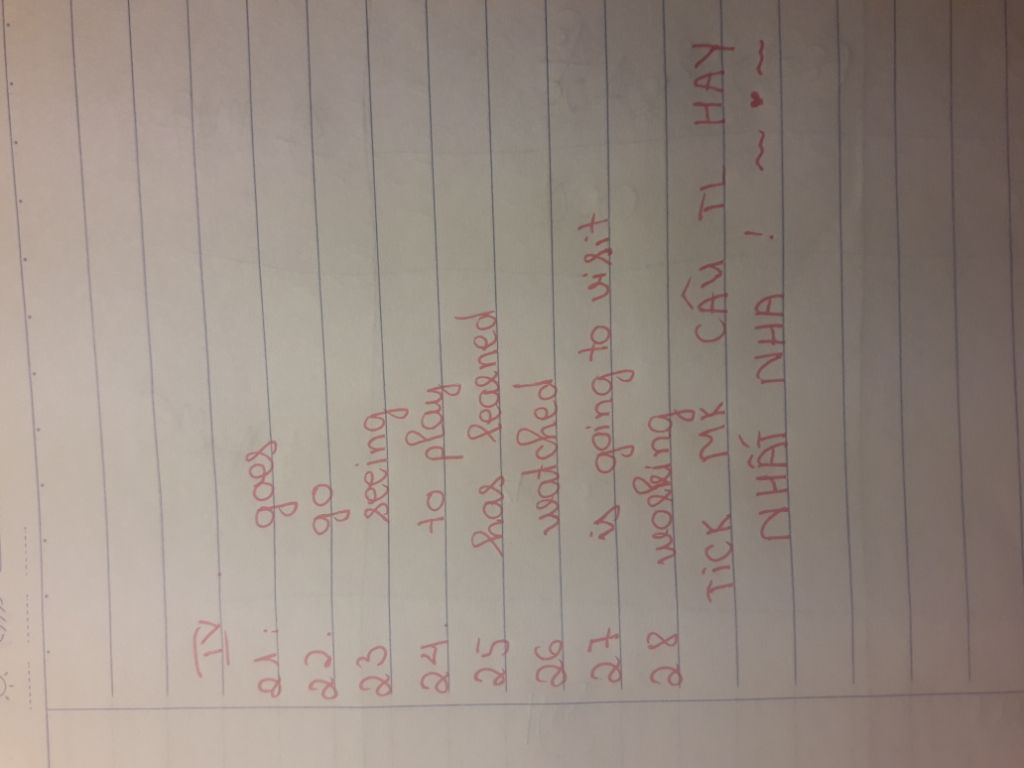 IV
21. goes
22. go
23 seeing
24. to play
25 has learned
26 watched
27 is going to visit
28 working
TICK MK CÂU TL HAY
NHẤT NHA ! ~ ♥ ~